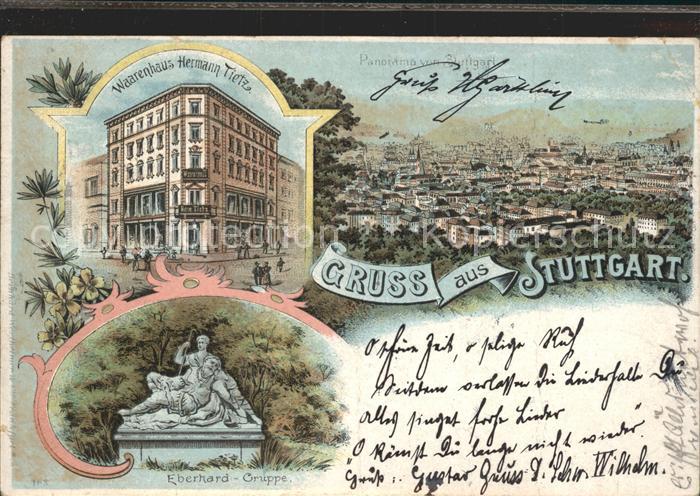 Waarenhaus Hermann Tietz.
Panorama von Stuttgart
Gruß
GRUSS aus STUTTGART.
O schöne Zeit, o selige Ruh
Seitdem verlassen die Liederhalle Du
Alles singet frohe Lieder
"O kämst Du lange nicht wieder".
Gruß: Gustav Wilhelm.
Eberhard-Gruppe.